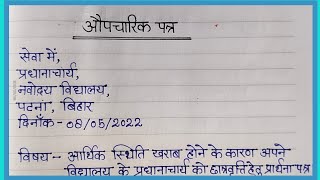 औपचारिक पत्र
सेवा में,
प्रधानाचार्य,
नवोदय विद्यालय,
पटना, बिहार
दिनाँक - 08/05/2022
विषय -- आर्थिक स्थिति खराब होने के कारण अपने
विद्यालय के प्रधानाचार्य को छात्रवृत्ति हेतु प्रार्थना पत्र